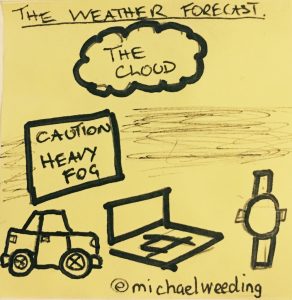 THE WEATHER FORECAST.
THE
CLOUD
CAUTION
HEAVY
FOG
@michaelweeding